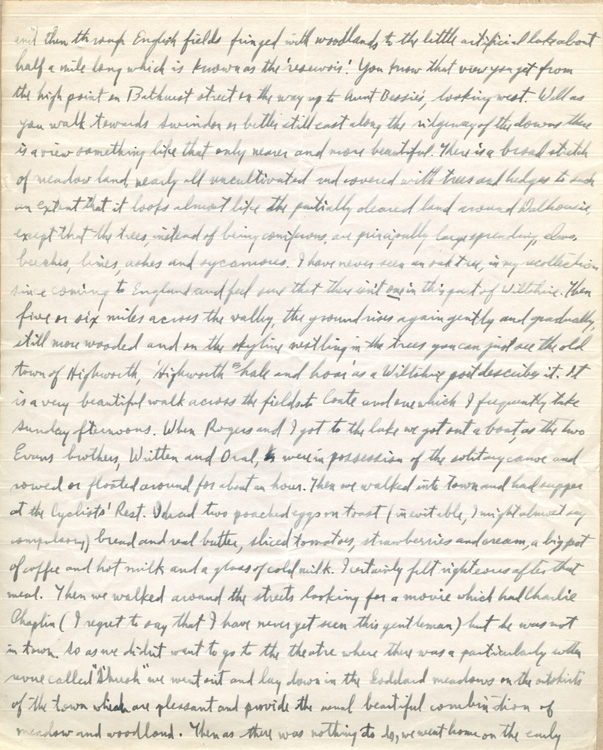 and then through English fields fringed with woodlands to the little artificial lake about
half a mile long which is known as the 'reservoir'. You know that view you get from
the high point on Bathurst street on the way up to Aunt Bessie's, looking west. Well as
you walk towards Swindon or better still east along the ridgeway of the downs there
is a view something like that only nearer and more beautiful. There is a broad stretch
of meadow land, nearly all uncultivated and covered with trees and hedges to such
an extent that it looks almost like the partially cleared land around Dalhousie,
except that the trees, instead of being coniferous, are principally large spreading elms,
beeches, limes, ashes and sycamores. I have never seen an oak tree, in my recollection
since coming to England and feel sure that there isn't one in this part of Wiltshire. Then
five or six miles across the valley, the ground rises again gently and gradually,
still more wooded and on the skyline nestling in the trees you can just see the old
town of Highworth, 'Highworth hale and hoar' as a Wiltshire poet describes it. It
is a very beautiful walk across the fields to Coate and one which I frequently take
Sunday afternoons. When Rogers and I got to the lake we got out a boat, as the two
Evans brothers, Written and Oral, were in possession of the solitary canoe and
rowed or floated around for about an hour. Then we walked into town and had supper
at the Cyclists' Rest. I had two poached eggs on toast (inevitable, I might almost say
compulsory) bread and real butter, sliced tomatoes, strawberries and cream, a big pot
of coffee and hot milk and a glass of cold milk. I certainly felt righteous after that
meal. Then we walked around the streets looking for a movie which had Charlie
Chaplin (I regret to say that I have never yet seen this gentleman) but he was not
in town. So as we didn't want to go to the theatre where there was a particularly rotten
revue called we went out and lay down in the Goddard meadows on the outskirts
of the town which are pleasant and provide the usual beautiful combination of
meadow and woodland. Then as there was nothing to do, we went home on the early